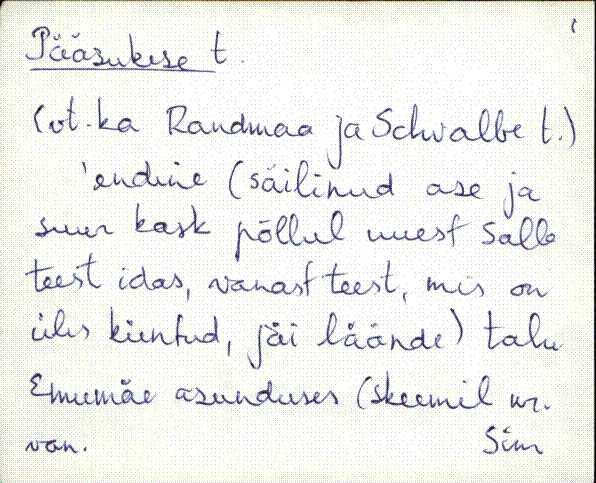 Pääsukese t.
(vt. ka Randmaa ja Schvalbe t.)
'endine (säilinud ase ja
suur kask põllul uuest Salla
teest idas, vanast teest, mis on
üles küntud, jäi läände) talu
Emumäe asunduses (skeemil nr.
van. Sim